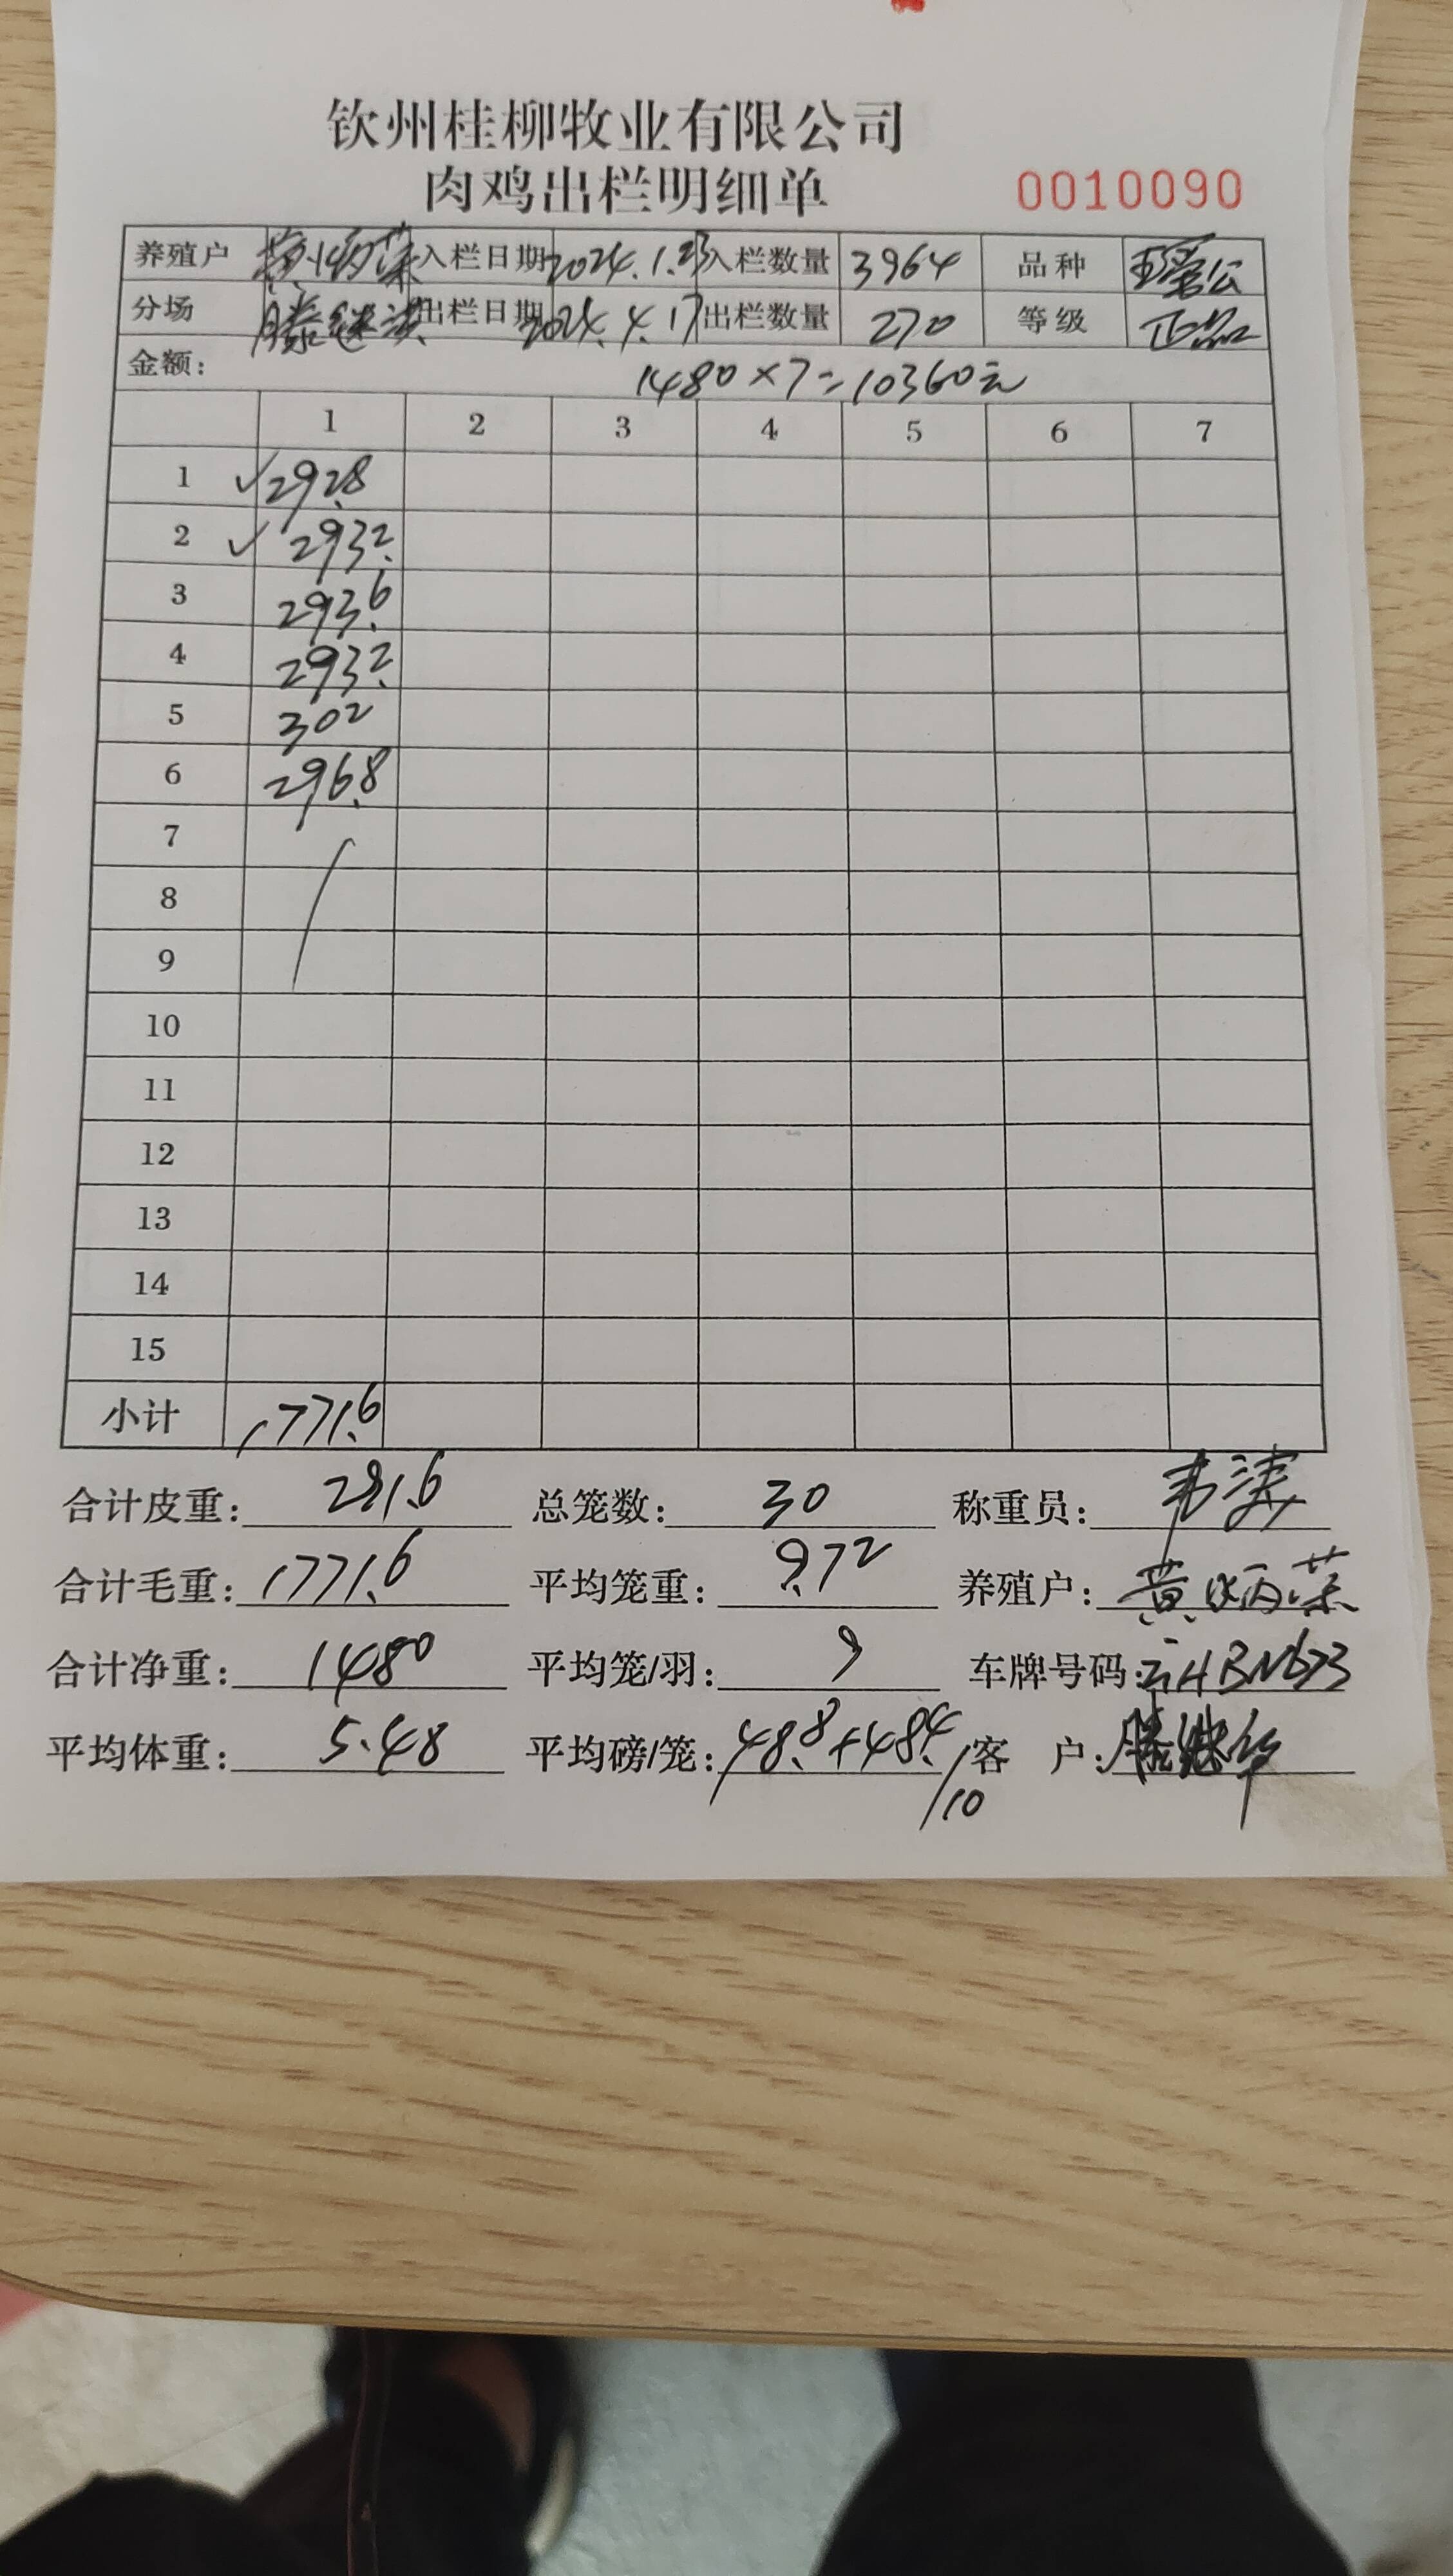 钦州桂柳牧业有限公司
肉鸡出栏明细单 0010090
养殖户 黄炳荣 入栏日期 2024.1.23 入栏数量 3964 品种
分场 滕继 出栏日期 2024.4.17 出栏数量 270 等级 正品
金额: 1480×7=10360元
1 2 3 4 5 6 7
1 ✓292.8
2 ✓293.2
3 293.6
4 293.2
5 302
6 296.8
7
8
9
10
11
12
13
14
15
小计 1771.6
合计皮重: 291.6 总笼数: 30 称重员: 韦涛
合计毛重: 1771.6 平均笼重: 9.72 养殖户: 黄炳荣
合计净重: 1480 平均笼/羽: 9 车牌号码: 云HBN673
平均体重: 5.48 平均磅/笼: 48.8+48.4/10 客 户: 滕继华